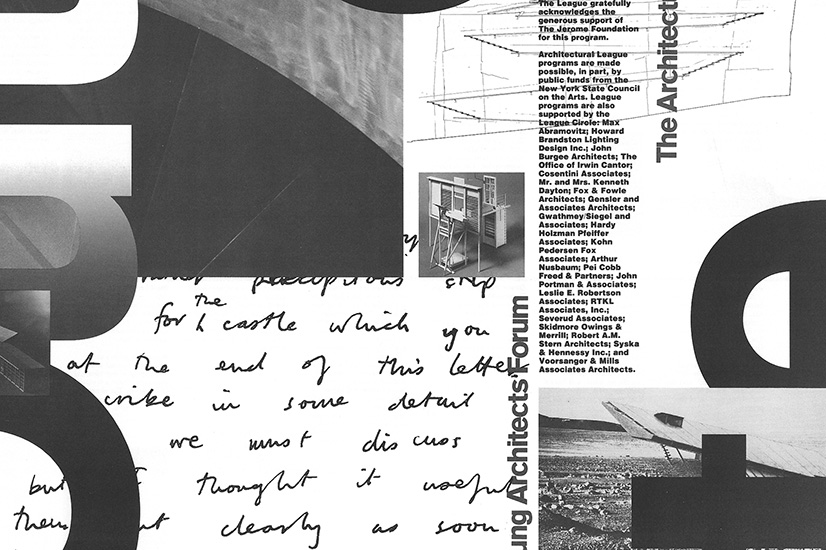 The League gratefully
acknowledges the
generous support of
The Jerome Foundation
for this program.
Architectural League
programs are made
possible, in part, by
public funds from the
New York State Council
on the Arts. League
programs are also
supported by the
League Circle: Max
Abramovitz; Howard
Brandston Lighting
Design Inc.; John
Burgee Architects; The
Office of Irwin Cantor;
Cosentini Associates;
Mr. and Mrs. Kenneth
Dayton; Fox & Fowle
Architects; Gensler and
Associates Architects;
Gwathmey Siegel and
Associates; Hardy
Holzman Pfeiffer
Associates; Kohn
Pedersen Fox
Associates; Arthur
Nusbaum; Pei Cobb
Freed & Partners; John
Portman & Associates;
Leslie E. Robertson
Associates; RTKL
Associates, Inc.;
Severud Associates;
Skidmore Owings &
Merrill; Robert A.M.
Stern Architects; Syska
& Hennessy Inc.; and
Voorsanger & Mills
Associates Architects.
The Architect
ung Architects' Forum
precipitous step
for the castle which you
at the end of this letter
cribe in some detail
we must discuss
but I thought it useful
them clearly as soon